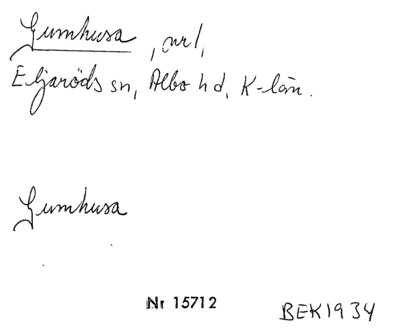 Gumhusa, nr 1,
Eljaröds sn, Albo hd, K-län.
Gumhusa
Nr 15712
BEK1934